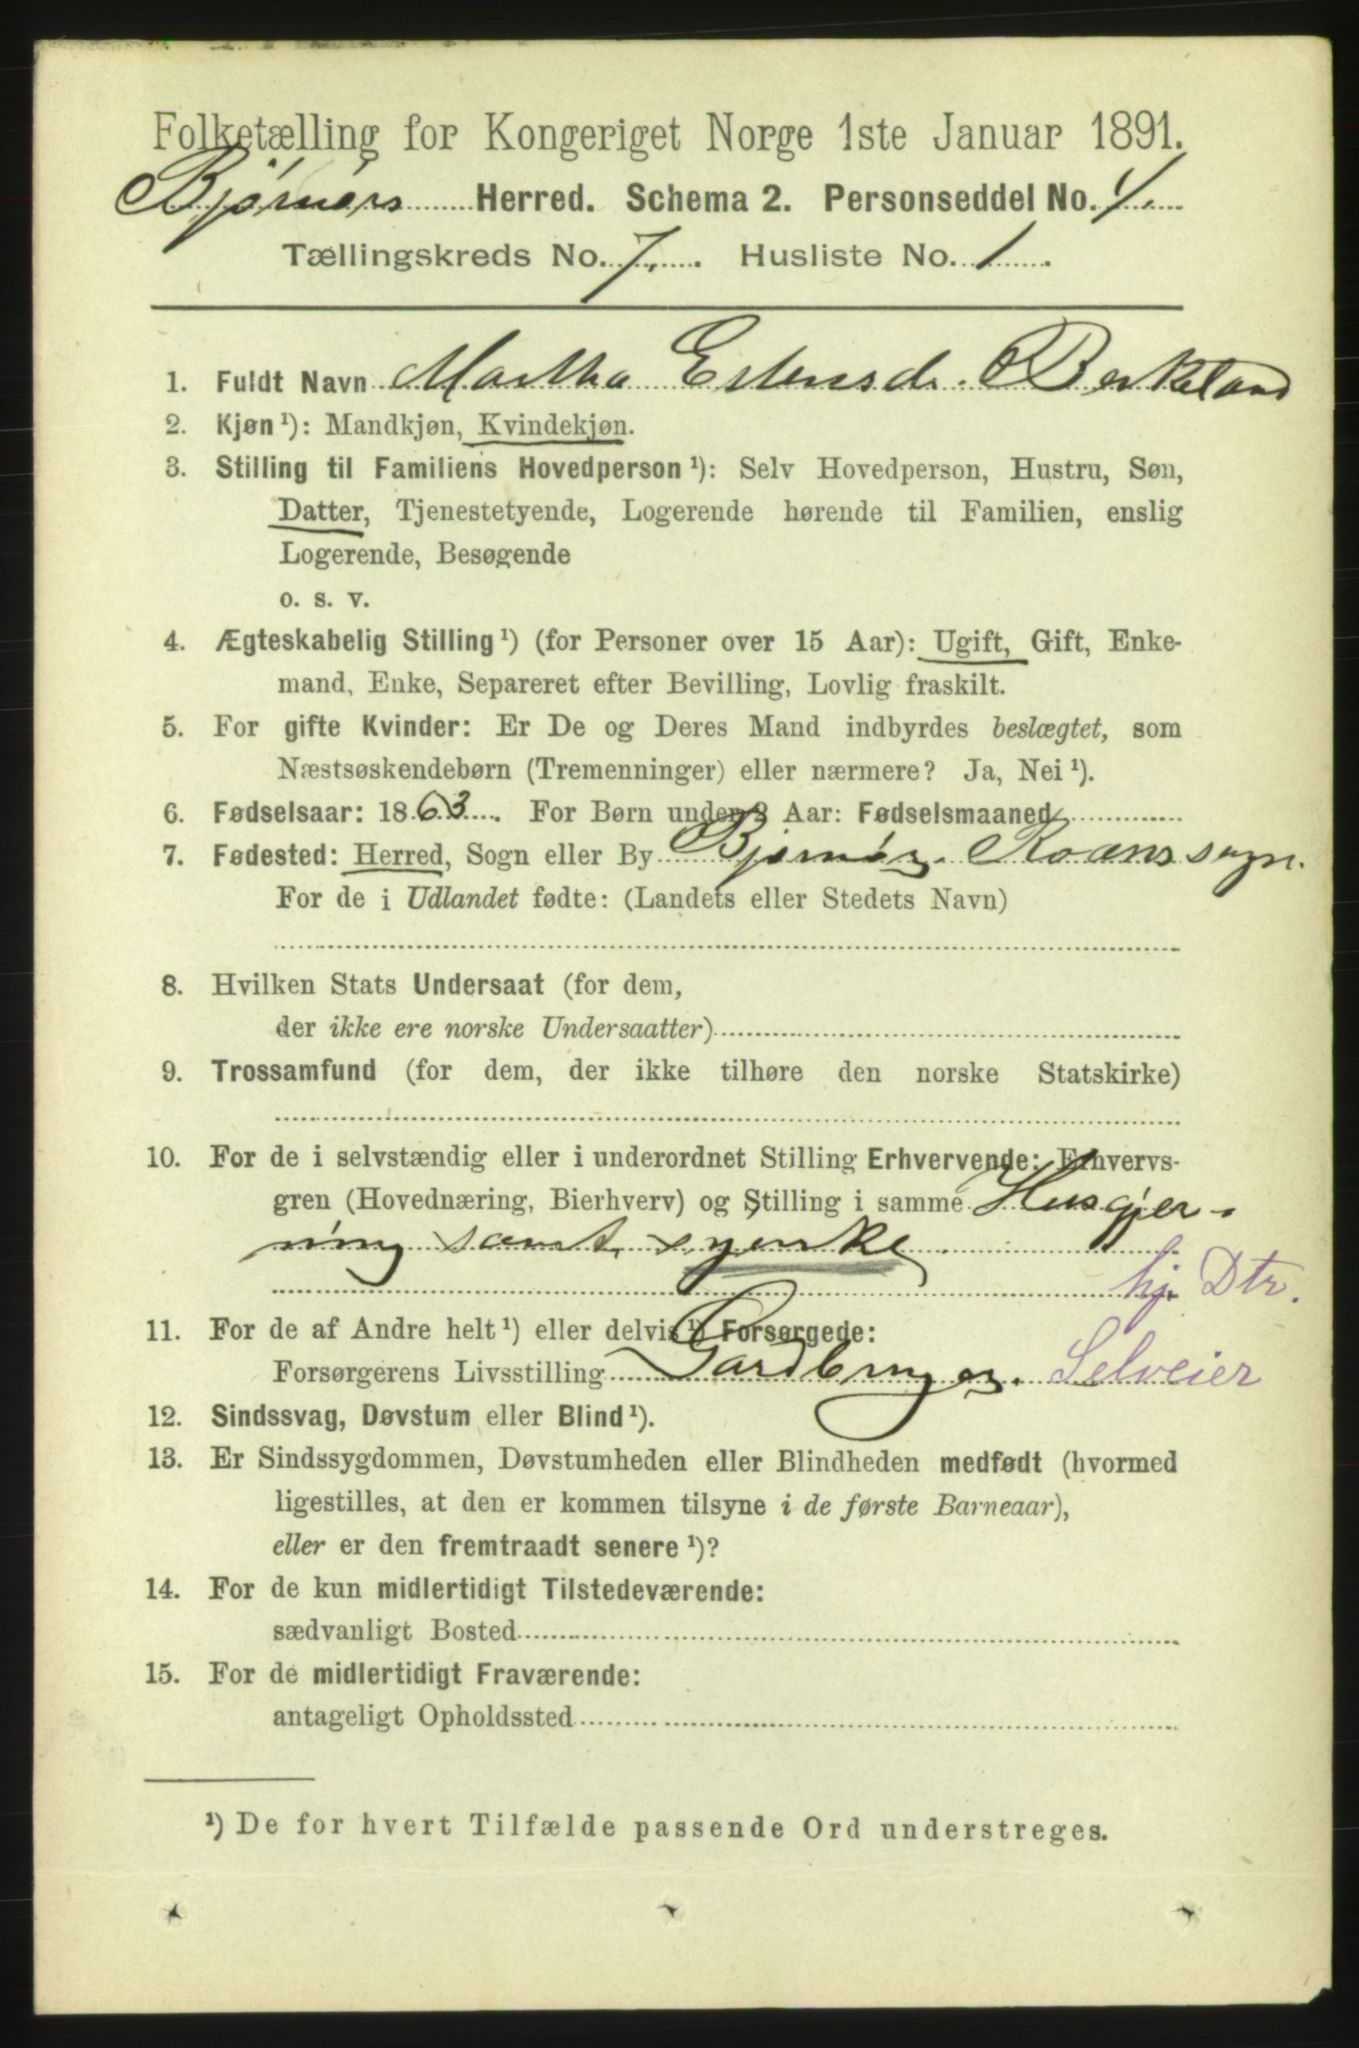 Folketælling for Kongeriget Norge 1ste Januar 1891.
Bjørnørs Herred. Schema 2. Personseddel No. 4.
Tællingskreds No. 7. Husliste No. 1
1. Fuldt Navn Martha Estensd. Berkeland
2. Kjøn ¹): Mandkjøn, Kvindekjøn.
3. Stilling til Familiens Hovedperson ¹): Selv Hovedperson, Hustru, Søn,
Datter, Tjenestetyende, Logerende hørende til Familien, enslig
Logerende, Besøgende
o. s. v.
4. Ægteskabelig Stilling ¹) (for Personer over 15 Aar): Ugift, Gift, Enke-
mand, Enke, Separeret efter Bevilling, Lovlig fraskilt.
5. For gifte Kvinder: Er De og Deres Mand indbyrdes beslægtet, som
Næstsøskendebørn (Tremenninger) eller nærmere? Ja, Nei ¹).
6. Fødselsaar: 1863. For Børn under 2 Aar: Fødselsmaaned
7. Fødested: Herred, Sogn eller By Bjørnør. Roans sogn.
For de i Udlandet fødte: (Landets eller Stedets Navn)
8. Hvilken Stats Undersaat (for dem,
der ikke ere norske Undersaatter)
9. Trossamfund (for dem, der ikke tilhøre den norske Statskirke)
10. For de i selvstændig eller i underordnet Stilling Erhvervende: Erhvervs-
gren (Hovednæring, Bierhverv) og Stilling i samme Husgjer-
ning samt syerske
hj. Dtr.
11. For de af Andre helt ¹) eller delvis ¹) Forsørgede:
Forsørgerens Livsstilling Gardbruger. Selveier
12. Sindssvag, Døvstum eller Blind ¹).
13. Er Sindssygdommen, Døvstumheden eller Blindheden medfødt (hvormed
ligestilles, at den er kommen tilsyne i de første Barneaar),
eller er den fremtraadt senere ¹)?
14. For de kun midlertidigt Tilstedeværende:
sædvanligt Bosted
15. For de midlertidigt Fraværende:
antageligt Opholdssted
¹) De for hvert Tilfælde passende Ord understreges.